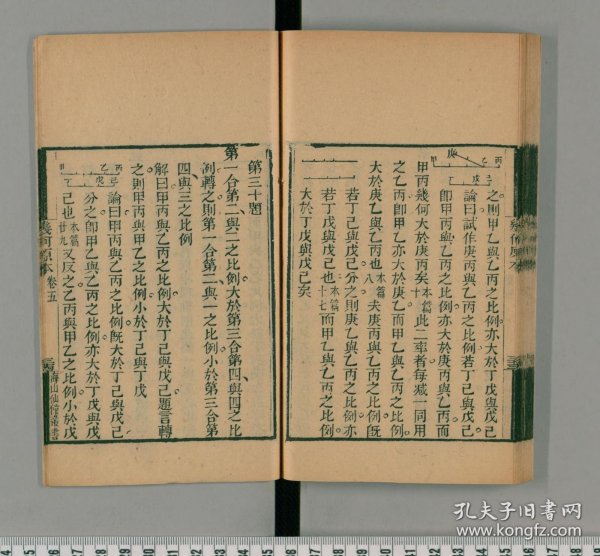 之則甲乙與乙丙之比例亦大於丁戊與戊己
論曰試作庚丙與乙丙之比例若丁己與戊己
卽甲丙與乙丙之比例亦大於庚丙與乙丙而
甲丙幾何大於庚丙矣本篇十此二率者每減一同用
之乙丙卽甲乙亦大於庚乙而甲乙與乙丙之比例
大於庚乙與乙丙也本篇八夫庚丙與乙丙之比例旣
若丁己與戊己分之則庚乙與乙丙之比例亦
若丁戊與戊己也本篇十七而甲乙與乙丙之比例
大於丁戊與戊己矣
第三十題
第一合第二與二之比例大於第三合第四與四之比
例轉之則第一合第二與一之比例小於第三合第
四與三之比例
解曰甲丙與乙丙之比例大於丁己與戊己題言轉
之則甲丙與甲乙之比例小於丁己與丁戊
論曰甲丙與乙丙之比例旣大於丁己與戊己
分之卽甲乙與乙丙之比例亦大於丁戊與戊
己也本篇廿九又反之乙丙與甲乙之比例小於戊
幾何原本 卷五
海山仙館叢書
孔夫子旧书网
www.kongfz.com